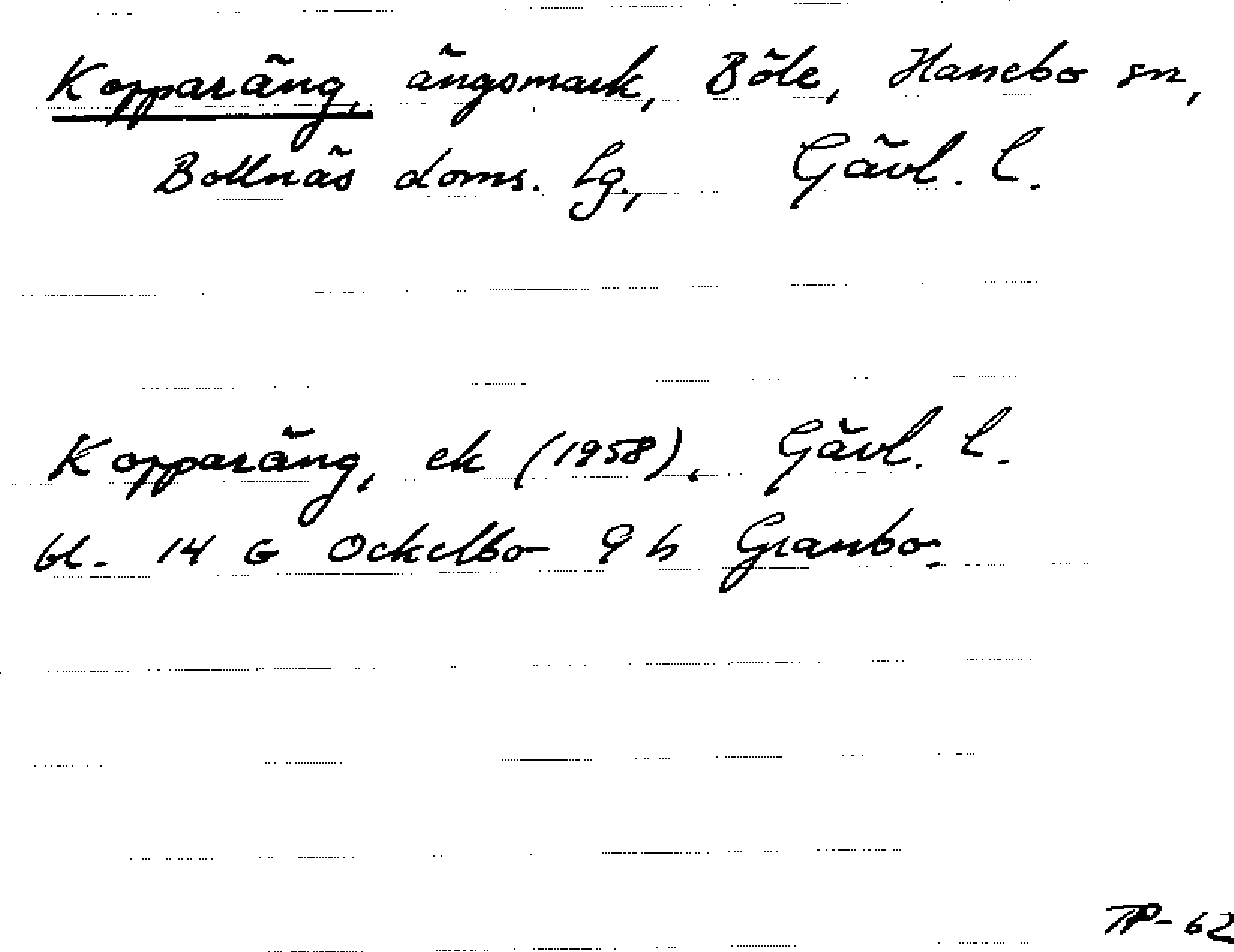 Kopparäng, ängsmark, Böle, Hanebo sn,
Bollnäs doms. lg., Gävl. l.
Kopparäng, ek (1958), Gävl. l.
bl. 14 G Ockelbo 9 h Granbo.
TP-62